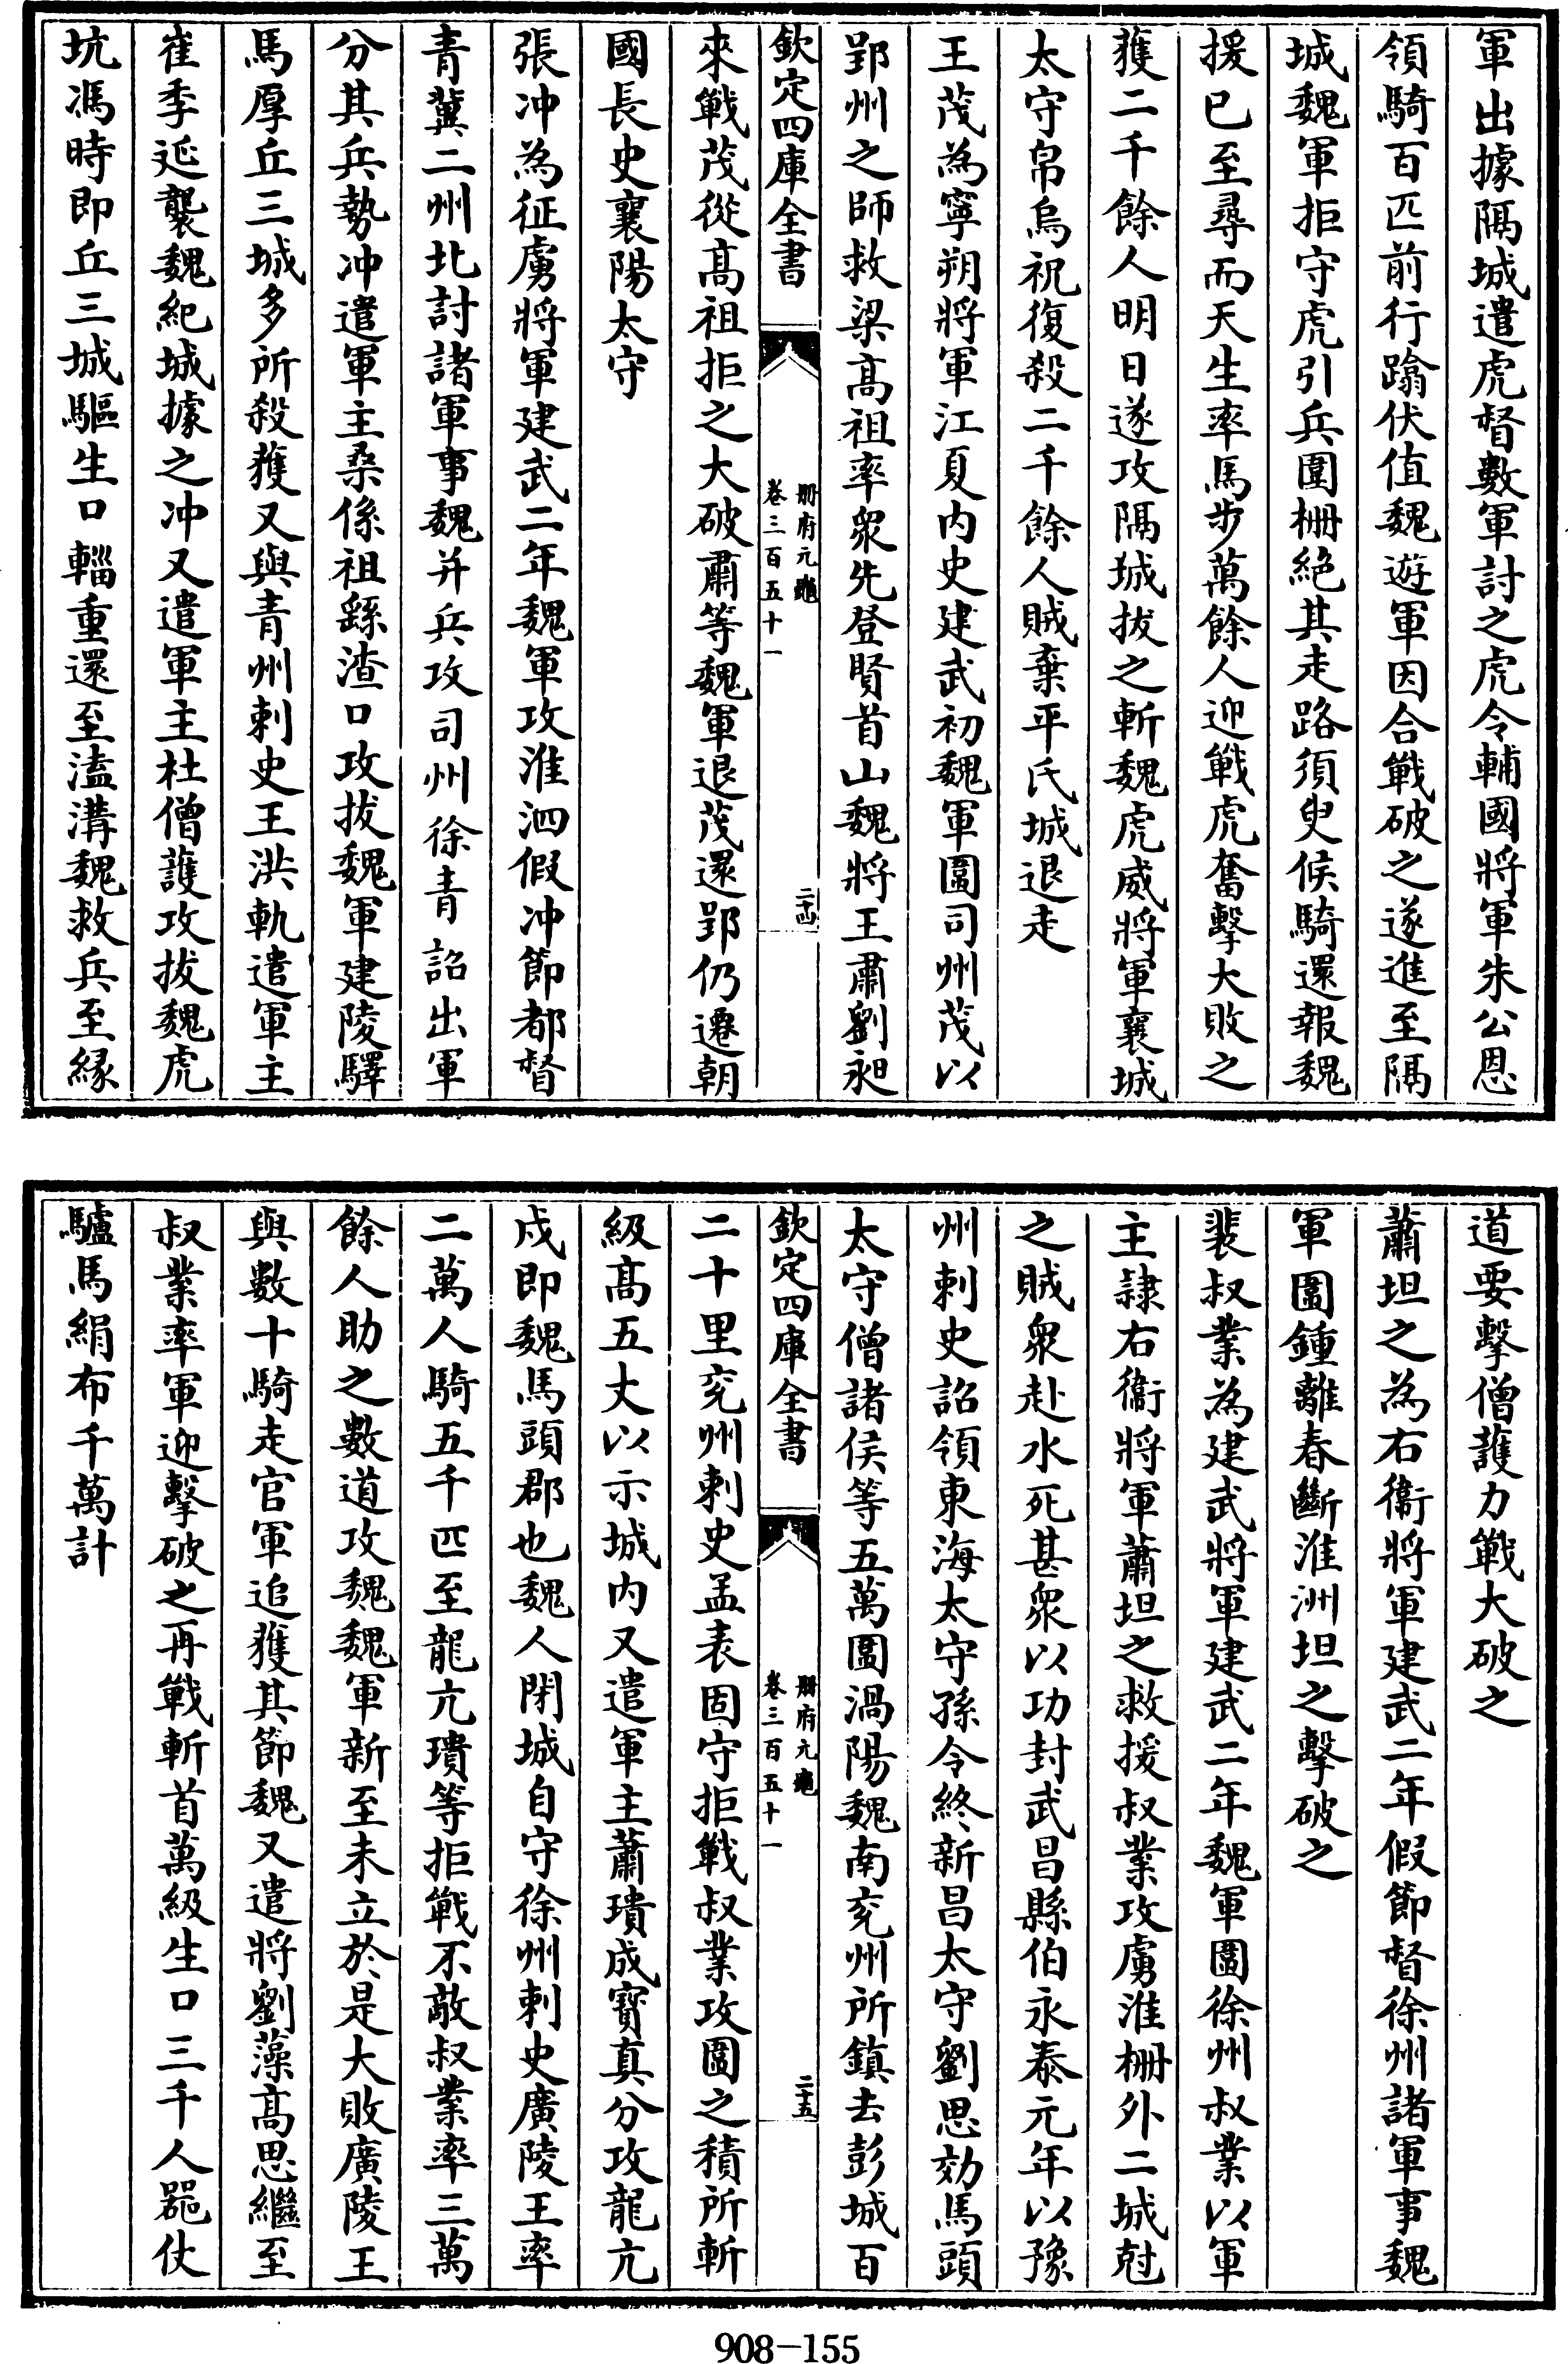 軍出據隔城遣虎督數軍討之虎令輔國將軍朱公恩
領騎百匹前行蹹伏值魏遊軍因合戰破之遂進至隔
城魏軍拒守虎引兵圍柵絶其走路須臾候騎還報魏
援已至尋而天生率馬步萬餘人迎戰虎奮擊大敗之
獲二千餘人明日遂攻隔城拔之斬魏虎威將軍襄城
太守帛烏祝復殺二千餘人賊棄平氏城退走
王茂為寧朔將軍江夏内史建武初魏軍圍司州茂以
郢州之師救梁高祖率衆先登賢首山魏將王肅劉昶
欽定四庫全書
冊府元龜
卷三百五十一
二十四
來戰茂從高祖拒之大破肅等魏軍退茂還郢仍遷朝
國長史襄陽太守
張冲為征虜將軍建武二年魏軍攻淮泗假冲節都督
青冀二州北討諸軍事魏并兵攻司州徐青詔出軍
分其兵勢冲遣軍主桑係祖繇渣口攻拔魏軍建陵驛
馬厚丘三城多所殺獲又與青州刺史王洪軌遣軍主
崔季延襲魏紀城據之冲又遣軍主杜僧護攻拔魏虎
坑馮時即丘三城驅生口輜重還至溘溝魏救兵至緣
道要擊僧護力戰大破之
蕭坦之為右衞將軍建武二年假節督徐州諸軍事魏
軍圍鍾離春斷淮洲坦之擊破之
裴叔業為建武將軍建武二年魏軍圍徐州叔業以軍
主隸右衞將軍蕭坦之救援叔業攻虜淮柵外二城尅
之賊衆赴水死甚衆以功封武昌縣伯永泰元年以豫
州刺史詔領東海太守孫令終新昌太守劉思効馬頭
太守僧諸侯等五萬圍渦陽魏南兖州所鎮去彭城百
欽定四庫全書
冊府元龜
卷三百五十一
二十五
二十里兖州刺史孟表固守拒戰叔業攻圍之積所斬
級高五丈以示城内又遣軍主蕭璝成寶真分攻龍亢
戍即魏馬頭郡也魏人閉城自守徐州刺史廣陵王率
二萬人騎五千匹至龍亢璝等拒戰不敵叔業率三萬
餘人助之數道攻魏魏軍新至未立於是大敗廣陵王
與數十騎走官軍追獲其節魏又遣將劉藻高思繼至
叔業率軍迎擊破之再戰斬首萬級生口三千人器仗
驢馬絹布千萬計
908-155